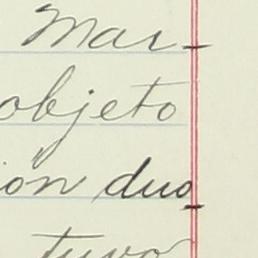 Mar-
objeto
ion duo-
tuvo